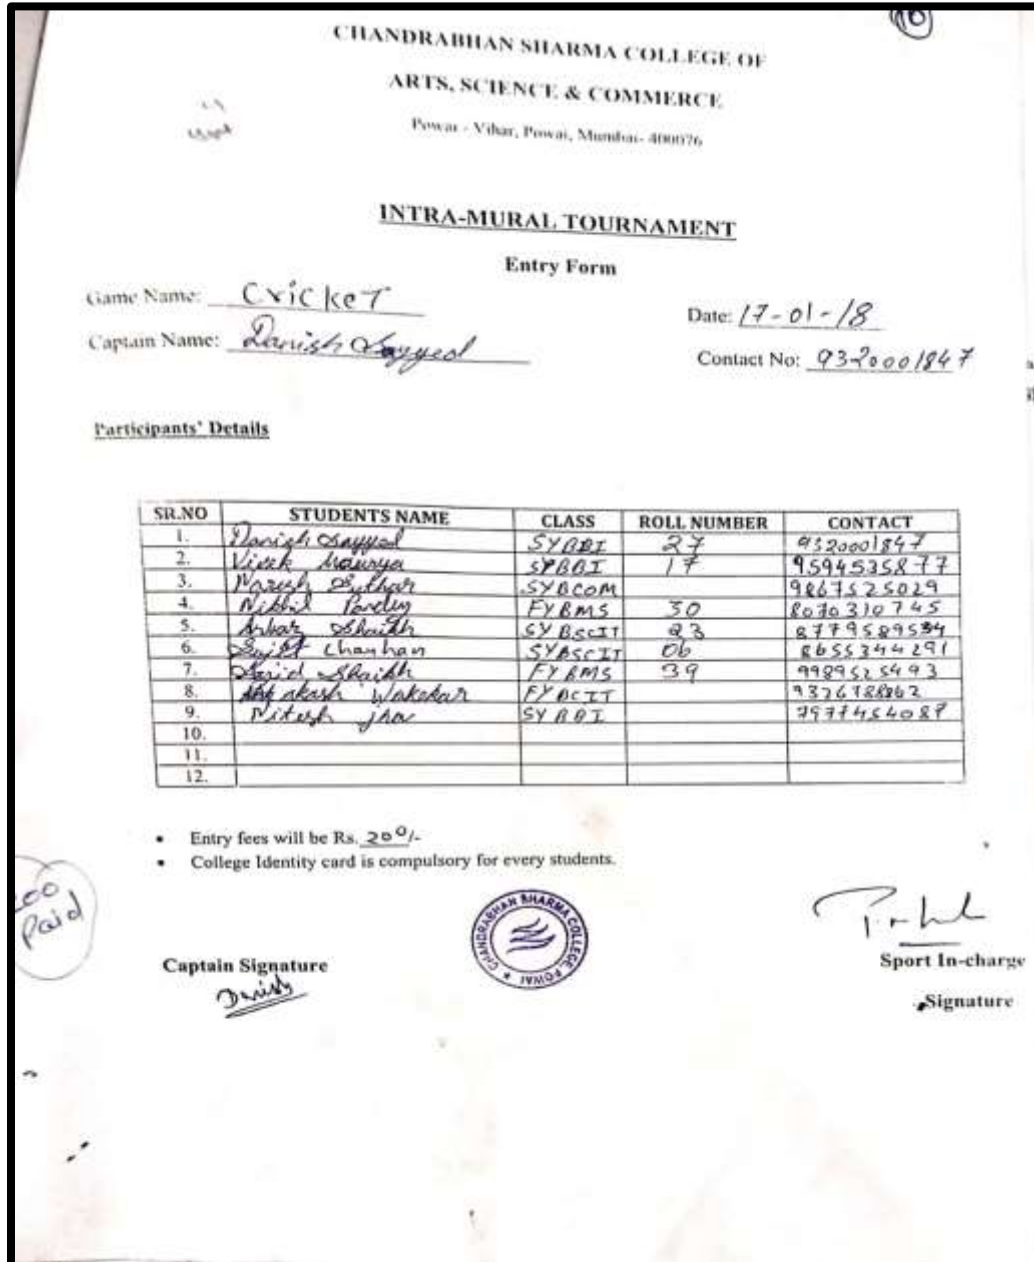 10
CHANDRABHAN SHARMA COLLEGE OF
ARTS, SCIENCE & COMMERCE
Powai - Vihar, Powai, Mumbai- 400076
INTRA-MURAL TOURNAMENT
Entry Form
Game Name: Cricket
Date: 17-01-18
Captain Name: Danish Sayyed
Contact No: 9320001847
Participants' Details
SR.NO STUDENTS NAME CLASS ROLL NUMBER CONTACT
1. Danish Sayyed SYBBI 27 9320001847
2. Vivek Maurya SYBBI 17 9594535877
3. Naresh Suthar SYBCOM 9867525029
4. Nikhil Pandey FYBMS 30 8070310745
5. Arbaz Shaikh SYBSCIT 23 8779589534
6. Chauhan SYBSCIT 06 8655344291
7. Shaikh FYBMS 39 9989525493
8. akash Wakekar FYBCIT
9. Nitesh jha SYBBI 7977454087
10.
11.
12.
• Entry fees will be Rs. 200/-
• College Identity card is compulsory for every students.
Paid
CHANDRABHAN SHARMA COLLEGE, POWAI
Captain Signature
Danish
Sport In-charge
Signature